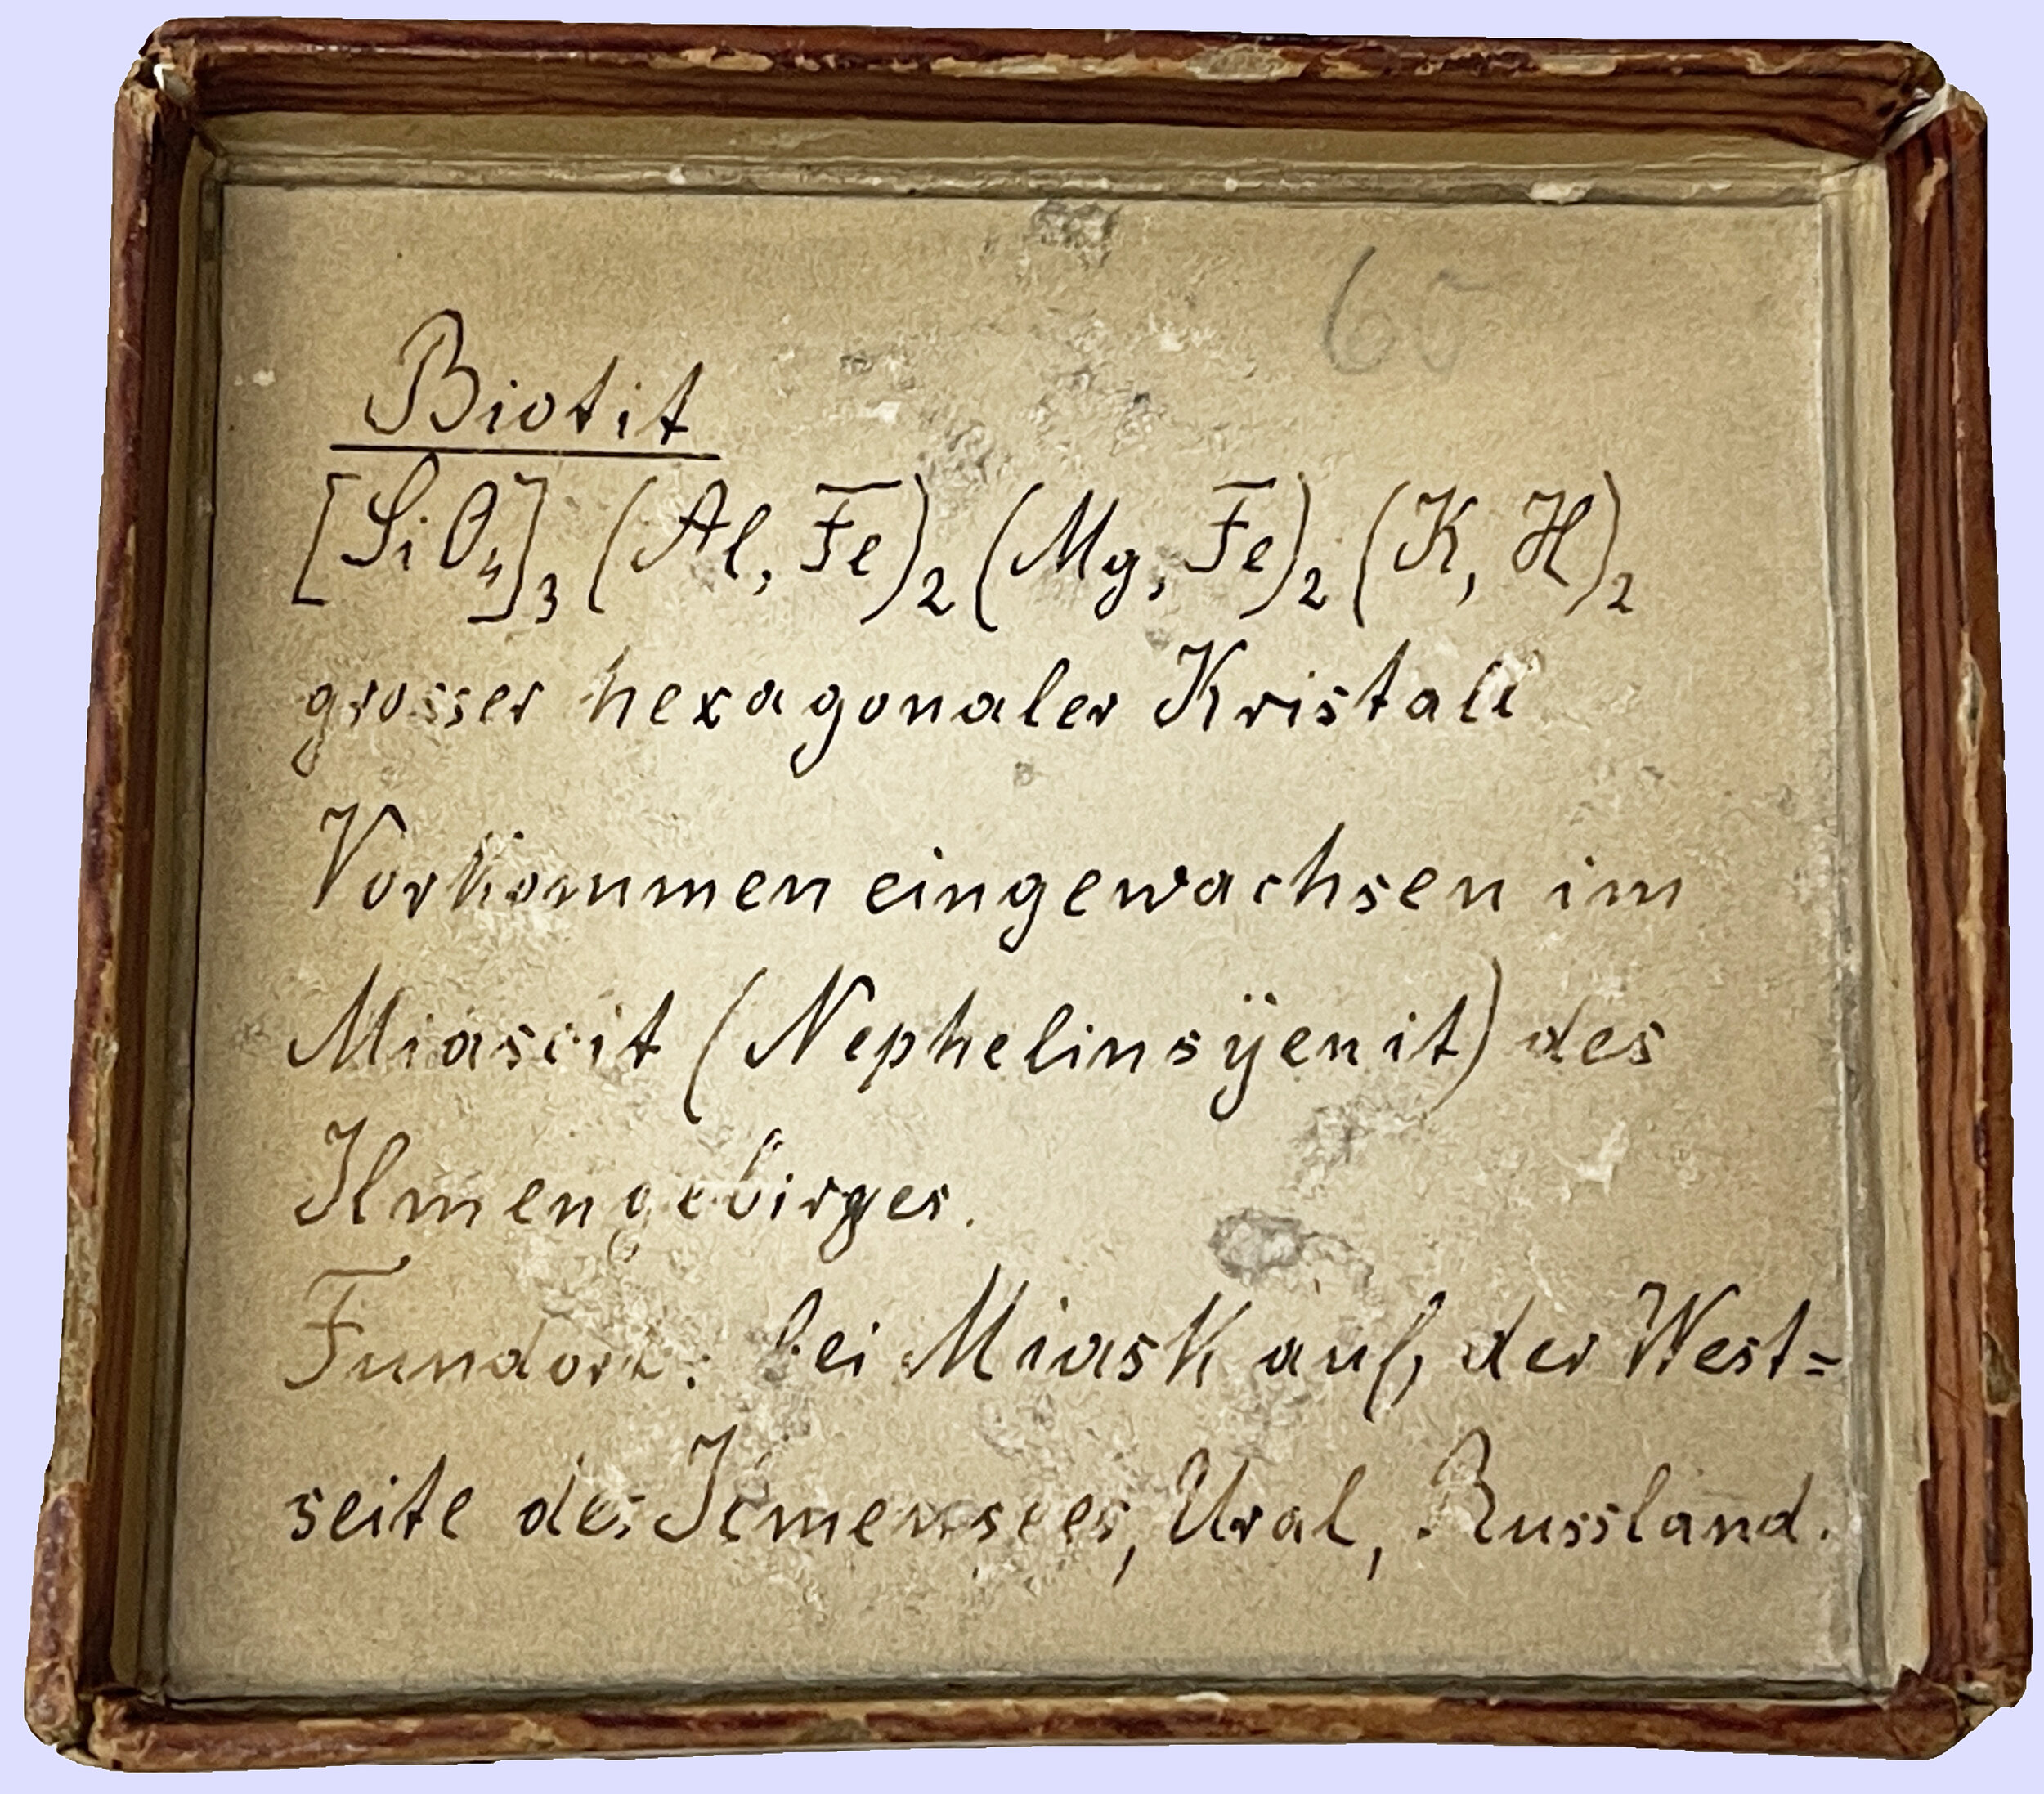 65
Biotit
[SiO₄]₃ (Al, Fe)₂ (Mg, Fe)₂ (K, H)₂
grosser hexagonaler Kristall
Vorkommen eingewachsen im
Miascit (Nephelinsÿenit) des
Ilmengebirges.
Fundort: bei Miask auf der West=
seite des Ilmensees, Ural, Russland.